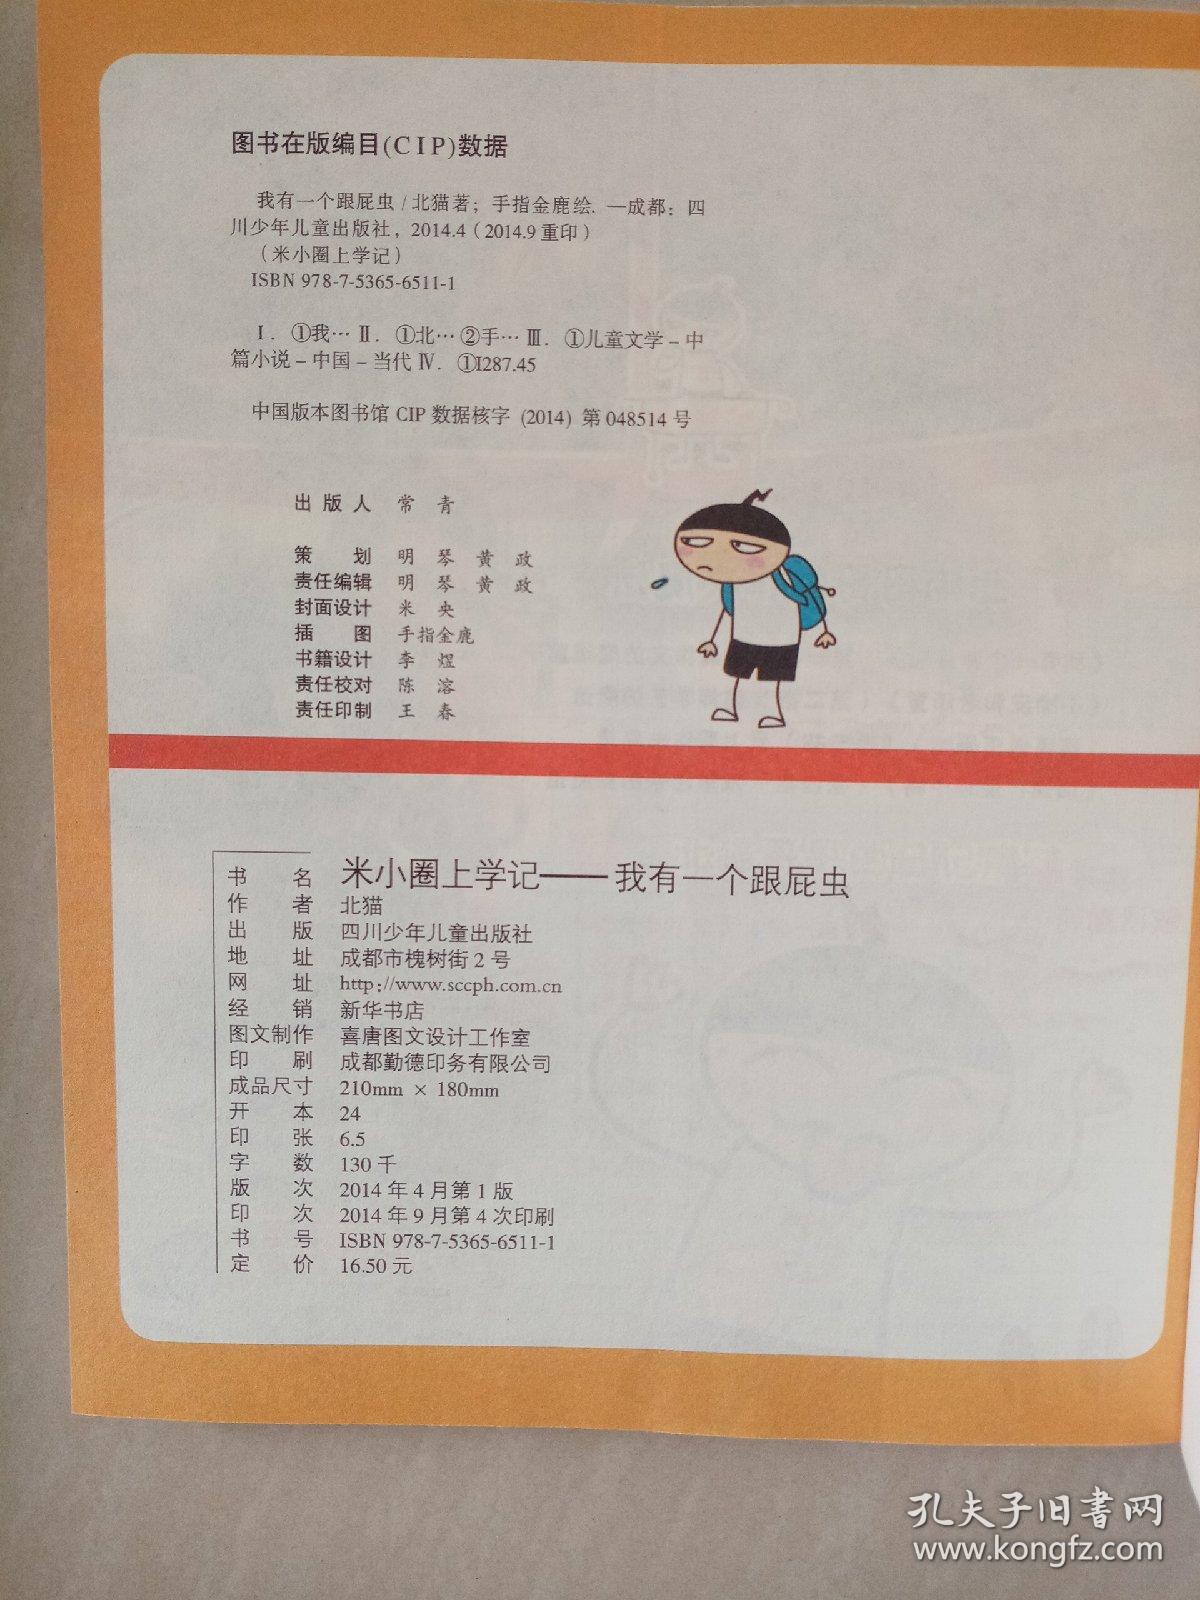 图书在版编目(CIP)数据
我有一个跟屁虫 / 北猫著；手指金鹿绘. —成都：四
川少年儿童出版社，2014.4（2014.9重印）
（米小圈上学记）
ISBN 978-7-5365-6511-1
Ⅰ. ①我… Ⅱ. ①北… ②手… Ⅲ. ①儿童文学－中
篇小说－中国－当代 Ⅳ. ①I287.45
中国版本图书馆 CIP 数据核字 (2014) 第 048514 号
出版人 常青
策划 明琴 黄政
责任编辑 明琴 黄政
封面设计 米央
插图 手指金鹿
书籍设计 李煜
责任校对 陈溶
责任印制 王春
书名 米小圈上学记——我有一个跟屁虫
作者 北猫
出版 四川少年儿童出版社
地址 成都市槐树街2号
网址 http://www.sccph.com.cn
经销 新华书店
图文制作 喜唐图文设计工作室
印刷 成都勤德印务有限公司
成品尺寸 210mm × 180mm
开本 24
印张 6.5
字数 130千
版次 2014年4月第1版
印次 2014年9月第4次印刷
书号 ISBN 978-7-5365-6511-1
定价 16.50元
孔夫子旧书网
www.kongfz.com